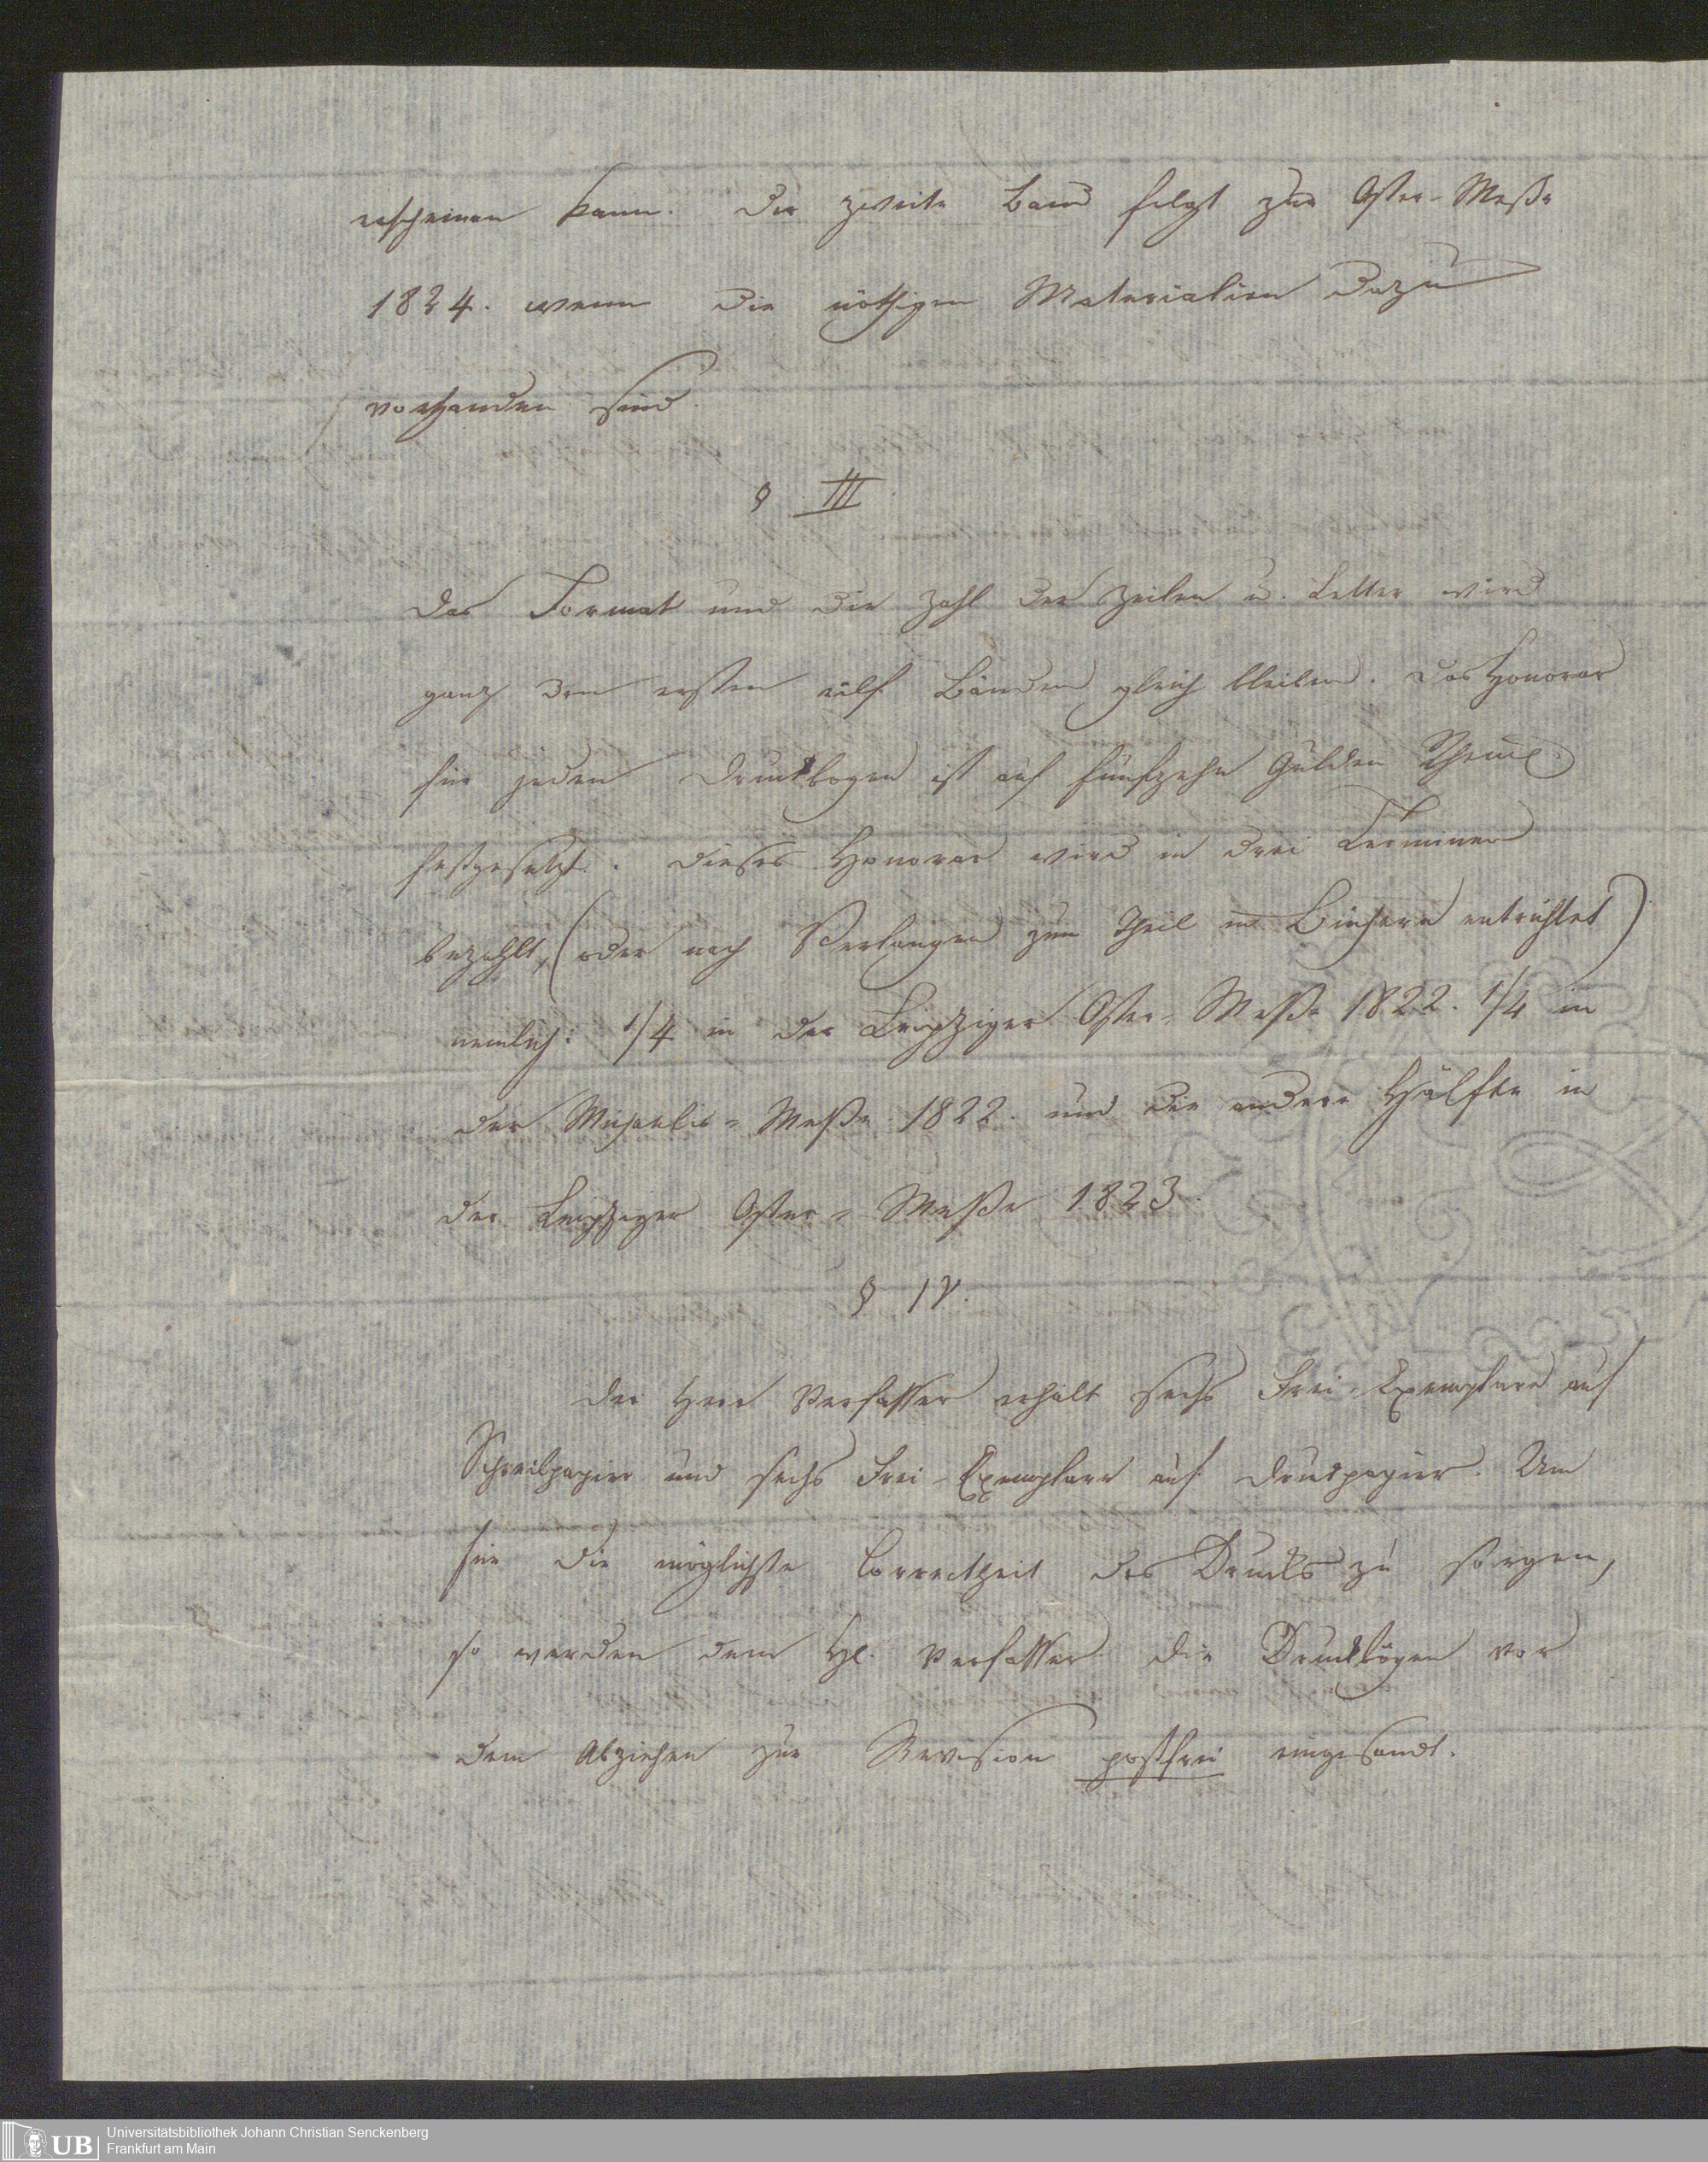 erscheinen kann. Der zweite Band folgt zur Oster-Messe
1824. wenn die nöthigen Materialien dazu
vorhanden sind.
§ III.
Das Format und die Zahl der Zeilen u. Letter wird
ganz den ersten eilf Bänden gleich bleiben. Das Honorar
für jeden Druckbogen ist auf fünfzehn Gulden Rheinl.
festgesetzt. Dieses Honorar wird in drei Terminen
bezahlt, (oder nach Verlangen zum Theil in Büchern entrichtet)
nemlich: 1/4 in der Leipziger Oster-Messe 1822. 1/4 in
der Michaelis-Messe 1822. und die andere Hälfte in
der Leipziger Oster-Messe 1823.
§ IV.
Der Herr Verfasser erhält sechs Frei-Exemplare auf
Schreibpapier und sechs Frei-Exemplare auf Druckpapier. Um
für die möglichste Correctheit des Drucks zu sorgen,
so werden dem H. Verfasser die Druckbögen vor
dem Abziehen zur Revision postfrei eingesandt.
Universitätsbibliothek Johann Christian Senckenberg
Frankfurt am Main
UB